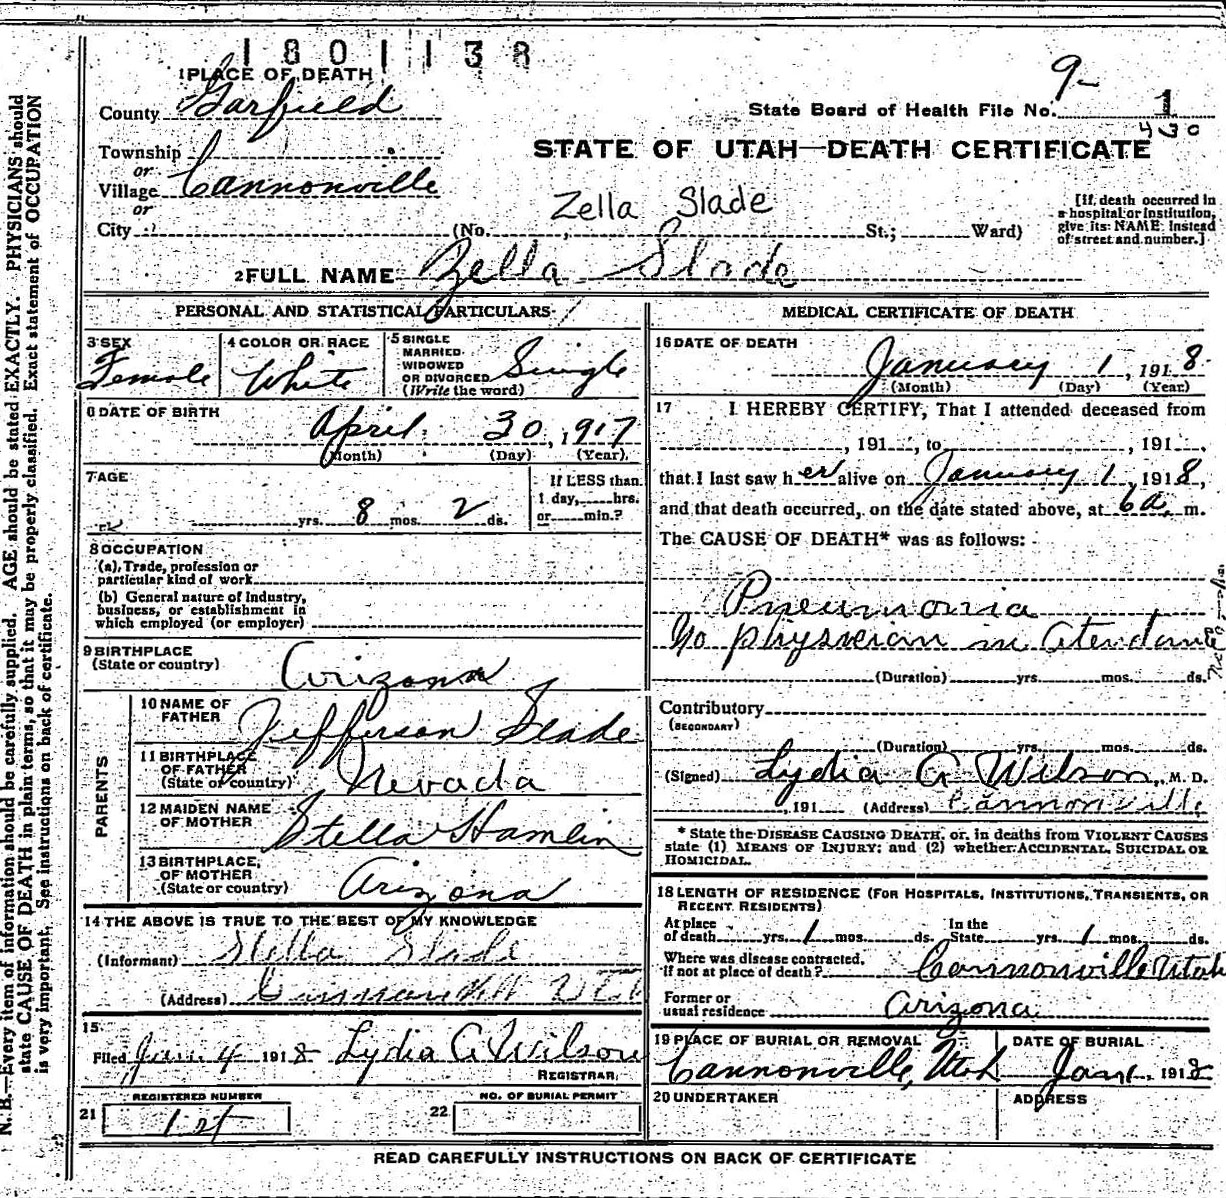 1801138
1 PLACE OF DEATH
County Garfield
9-
State Board of Health File No. 1
430
Township
or
Village Cannonville
or
STATE OF UTAH—DEATH CERTIFICATE
Zella Slade
City (No. , St.; Ward)
[If death occurred in
a hospital or institution,
give its NAME instead
of street and number.]
2 FULL NAME Zella Slade
PERSONAL AND STATISTICAL PARTICULARS
3 SEX
Female
4 COLOR OR RACE
White
5 SINGLE
MARRIED
WIDOWED
OR DIVORCED
(Write the word)
Single
6 DATE OF BIRTH
April 30, 1917
(Month) (Day) (Year)
7 AGE
yrs. 8 mos. 2 ds.
If LESS than
1 day, hrs.
or min.?
8 OCCUPATION
(a) Trade, profession or
particular kind of work
(b) General nature of Industry,
business, or establishment in
which employed (or employer)
9 BIRTHPLACE
(State or country)
Arizona
PARENTS
10 NAME OF
FATHER
Jefferson Slade
11 BIRTHPLACE
OF FATHER
(State or country)
Nevada
12 MAIDEN NAME
OF MOTHER
Stella Hamlin
13 BIRTHPLACE
OF MOTHER
(State or country)
Arizona
14 THE ABOVE IS TRUE TO THE BEST OF MY KNOWLEDGE
(Informant) Stella Slade
(Address)
15
Filed Jan 4 1918 Lydia A Wilson
REGISTRAR
REGISTERED NUMBER
21 1st
NO. OF BURIAL PERMIT
22
MEDICAL CERTIFICATE OF DEATH
16 DATE OF DEATH
January 1, 1918
(Month) (Day) (Year)
17 I HEREBY CERTIFY, That I attended deceased from
, 191 , to , 191 .
that I last saw her alive on January 1, 1918,
and that death occurred, on the date stated above, at 6 a. m.
The CAUSE OF DEATH* was as follows:
Pneumonia
No physician in Atendance
(Duration) yrs. mos. ds.
Contributory
(SECONDARY)
(Duration) yrs. mos. ds.
(Signed) Lydia A Wilson, M. D.
, 191 (Address) Cannonville
* State the DISEASE CAUSING DEATH, or, in deaths from VIOLENT CAUSES
state (1) MEANS OF INJURY; and (2) whether ACCIDENTAL, SUICIDAL OR
HOMICIDAL.
18 LENGTH OF RESIDENCE (FOR HOSPITALS, INSTITUTIONS, TRANSIENTS, OR
RECENT RESIDENTS)
At place
of death yrs. 1 mos. ds.
In the
State yrs. 1 mos. ds.
Where was disease contracted,
if not at place of death? Cannonville Utah
Former or
usual residence Arizona
19 PLACE OF BURIAL OR REMOVAL
Cannonville, Utah
DATE OF BURIAL
Jan 1, 1918
20 UNDERTAKER
ADDRESS
READ CAREFULLY INSTRUCTIONS ON BACK OF CERTIFICATE
N. B.—Every item of information should be carefully supplied. AGE should be stated EXACTLY. PHYSICIANS should
state CAUSE OF DEATH in plain terms, so that it may be properly classified. Exact statement of OCCUPATION
is very important. See instructions on back of certificate.